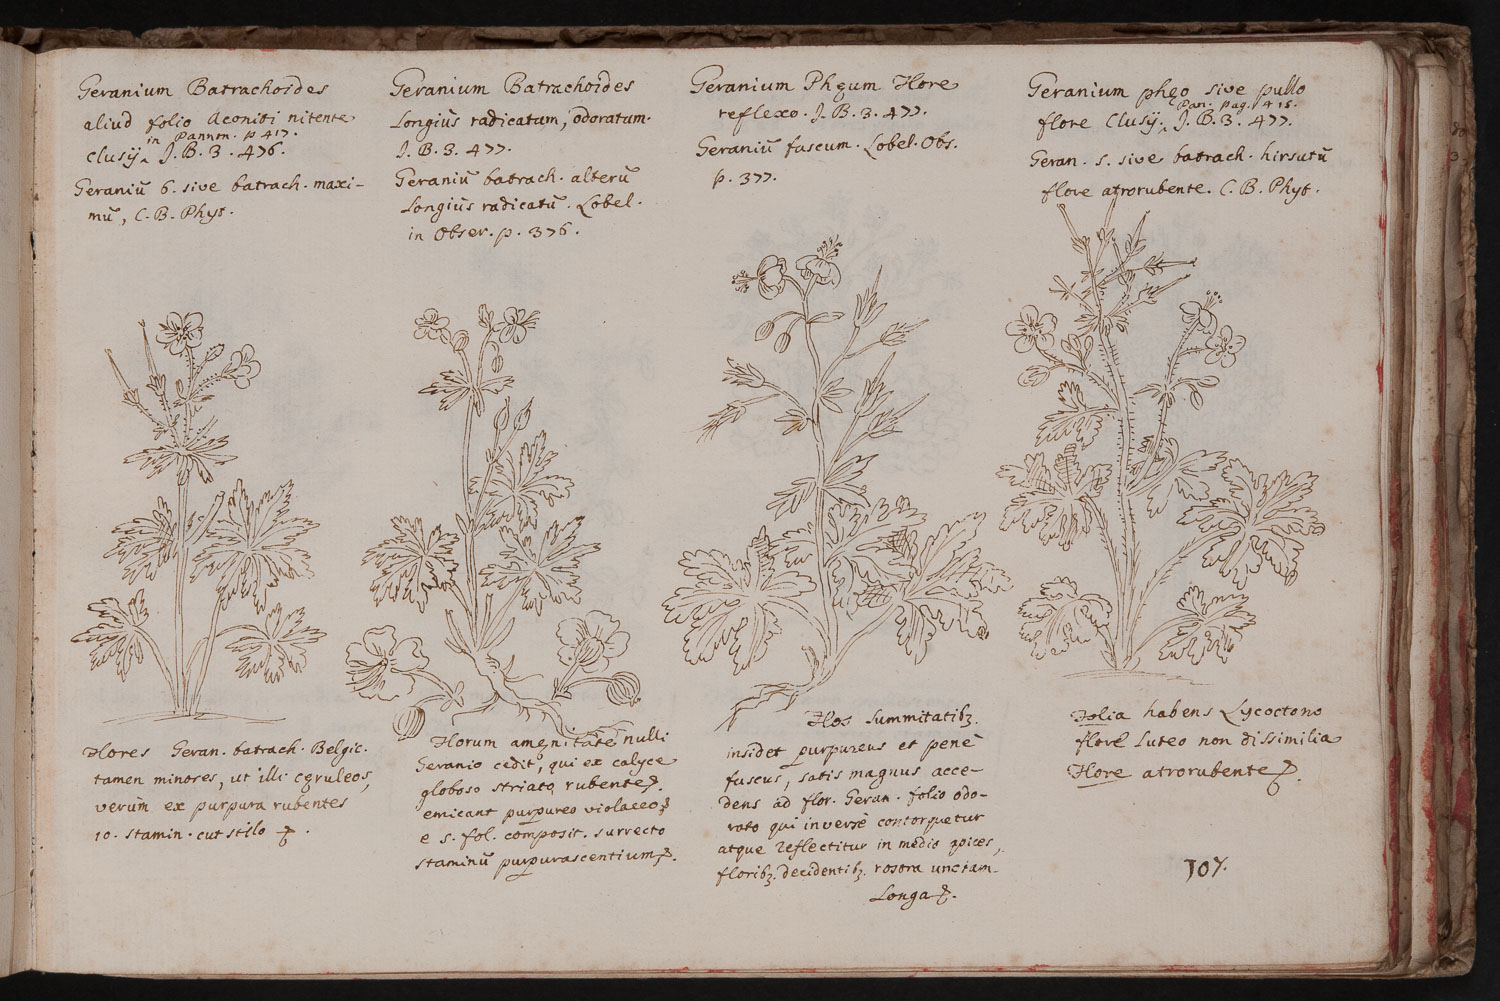 Geranium Batrachoides
aliud folio Aconiti nitente
in Pannon. p 417.
Clusij ‸ J. B. 3. 476.
Geraniū 6. sive batrach. maxi-
mū, C. B. Phyt.
Geranium Batrachoides
Longiùs radicatum, odoratum.
J. B. 3. 477.
Geraniū batrach. alterū
Longiùs radicatū. Lobel.
in Obser. p. 376.
Geranium Phęum Flore
reflexo. J. B. 3. 477.
Geraniū fuscum. Lobel. Obs.
p. 377.
Geranium phęo sive pullo
Pan. pag. 415.
flore Clusij. ‸ J. B. 3. 477.
Geran. 5. sive batrach. hirsutū
flore atrorubente. C. B. Phyt.
Flores Geran. batrach. Belgic.
tamen minores, ut illi cęruleos,
verùm ex purpura rubentes
10. stamin. cut stilo
Florum amęnitate nulli
Geranio cedit, qui ex calyce
globoso striato rubente
emicant purpureo violaceo
e 5. fol. composit. surrecto
staminū purpurascentium
Flos summitatibꝫ
insidet purpureus et penè
fuscus, satis magnus acce-
dens ad flor. Geran. folio odo-
rato qui inversè contorquetur
atque reflectitur in medio apices,
floribꝫ decidentibꝫ rostra unciam
Longa
Folia habens Lycoctono
flore Luteo non dissimilia
Flore atrorubente
107.